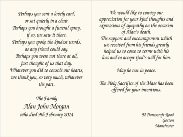 Perhaps you sent a lovely card,
or sat quietly in a chair.
Perhaps you sent a funeral spray,
if so, we saw it there.
Perhaps you spoke the kindest words,
as any friend could say,
Perhaps you were not there at all,
just thought of us that day.
Whatever you did to console our hearts,
we thank you, so very much, whatever
the part.
The family
Alan John Morgan
who died 16th February 2014
We would like to convey our
appreciation for your kind thoughts and
expressions of sympathy on the occasion
of Alan's death.
The support and encouragement which
we received from his friends greatly
helped us to come to terms with his
loss and to accept God's will for him.
May he rest in peace.
The Holy Sacrifice of the Mass has been
offered for your intentions.